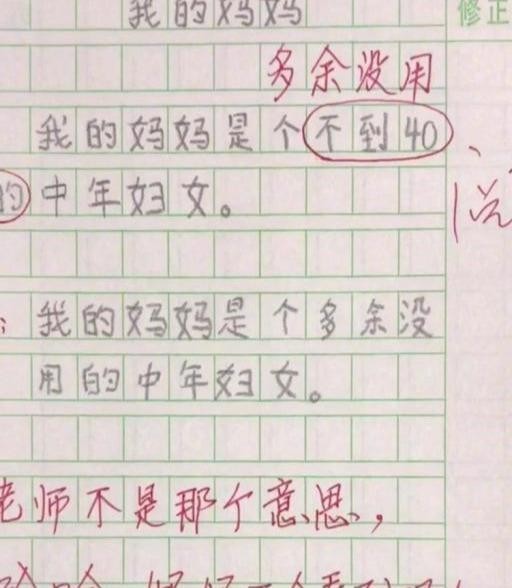 我的妈妈
修正
多余没用
我的妈妈是个不到40、
的中年妇女。
我的妈妈是个多余没
用的中年妇女。
老师不是那个意思,